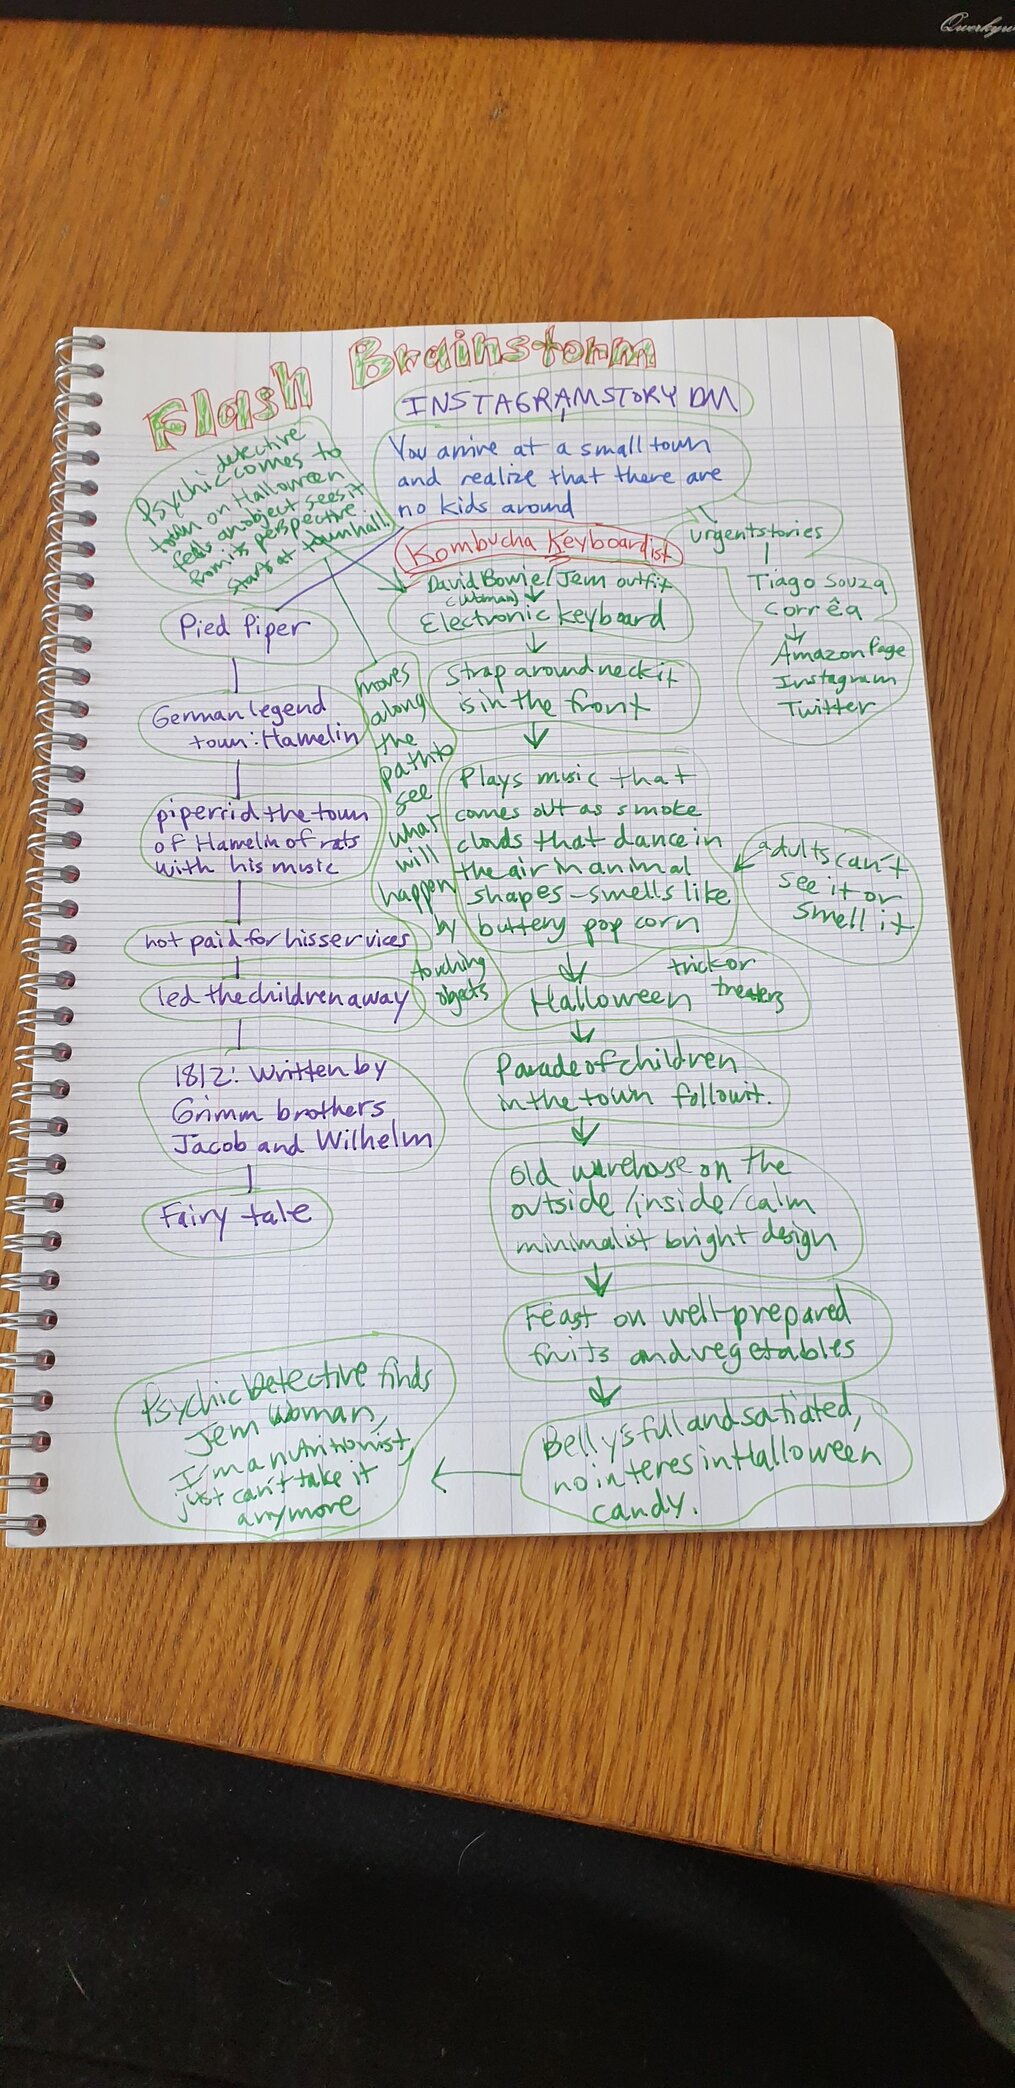 Flash Brainstorm
INSTAGRAM STORY DM
You arrive at a small town
and realize that there are
no kids around
Psychic detective
comes to
town on Halloween
feels an object sees it
from its perspective
starts at town hall.
Kombucha Keyboardist
urgentstories
Tiago Souza
Corrêa
Amazon Page
Instagram
Twitter
David Bowie/Jem outfit
(woman)
Electronic Keyboard
Strap around neck it
is in the front
Plays music that
comes out as smoke
clouds that dance in
the air in animal
shapes - smells like
buttery pop corn
adults can't
see it or
smell it
Halloween
trick or
treaters
Parade of children
in the town follow it.
Old warehose on the
outside/inside/calm
minimalist bright design
Feast on well-prepared
fruits and vegetables
Belly's full and satiated,
no interes in Halloween
candy.
Psychic Detective finds
Jem Woman,
I'm a nutritionist,
just can't take it
anymore
moves
along
the
path to
see
what
will
happen
by
touching
objects
Pied Piper
German legend
town: Hamelin
piper rid the town
of Hamelin of rats
with his music
not paid for his services
led the children away
1812: Written by
Grimm brothers
Jacob and Wilhelm
Fairy tale